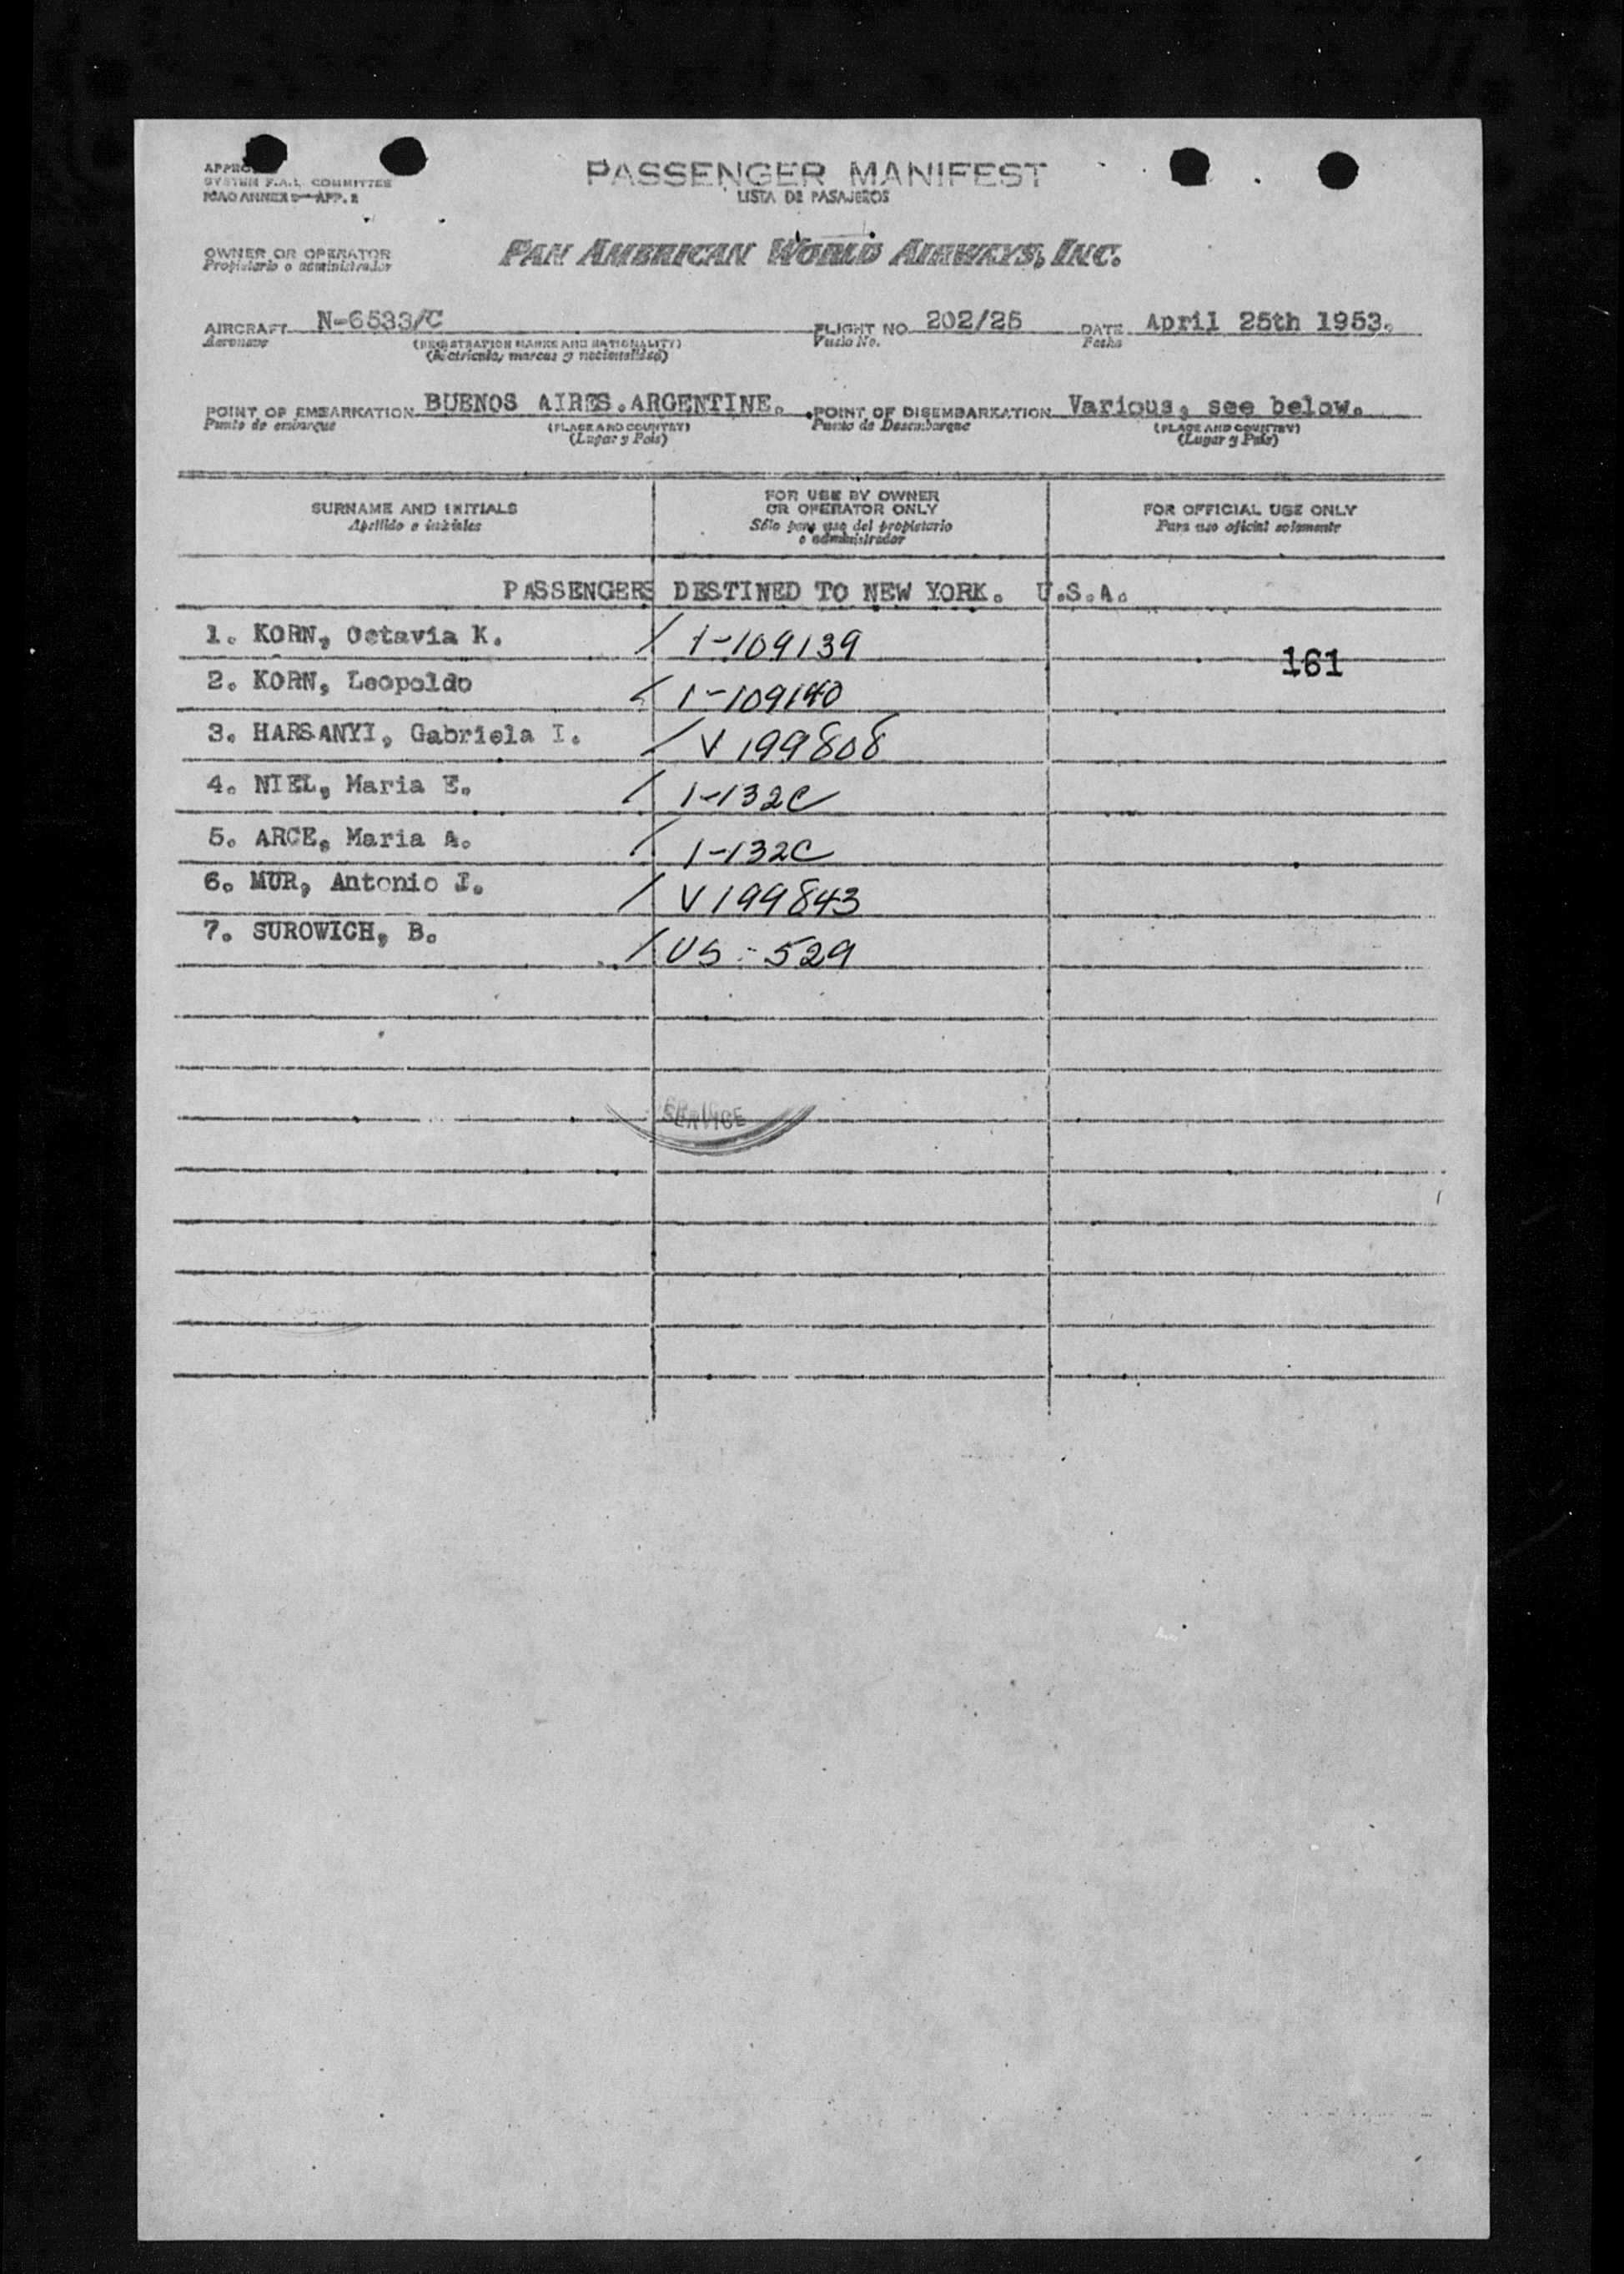 APPROVED
SYSTEM F.A.L. COMMITTEE
ICAO ANNEX 9—APP. 2
PASSENGER MANIFEST
LISTA DE PASAJEROS
OWNER OR OPERATOR
Propietario o administrador
PAN AMERICAN WORLD AIRWAYS, INC.
AIRCRAFT N-6533/C FLIGHT NO. 202/25 DATE April 25th 1953.
Aeronave (REGISTRATION MARKS AND NATIONALITY) Vuelo No. Fecha
(Matricula, marcas y nacionalidad)
POINT OF EMBARKATION BUENOS AIRES.ARGENTINE. POINT OF DISEMBARKATION Various, see below.
Punto de embarque (PLACE AND COUNTRY) Punto de Desembarque (PLACE AND COUNTRY)
(Lugar y Pais) (Lugar y Pais)
SURNAME AND INITIALS
Apellido e iniciales
FOR USE BY OWNER
OR OPERATOR ONLY
Sólo para uso del propietario
o administrador
FOR OFFICIAL USE ONLY
Para uso oficial solamente
PASSENGERS DESTINED TO NEW YORK. U.S.A.
1. KORN, Octavia K. / 1-109139
161
2. KORN, Leopoldo / 1-109140
3. HARSANYI, Gabriela I. / V 199808
4. NIEL, Maria E. / 1-132C
5. ARCE, Maria A. / 1-132C
6. MUR, Antonio J. / V 199843
7. SUROWICH, B. / US-529
SERVICE